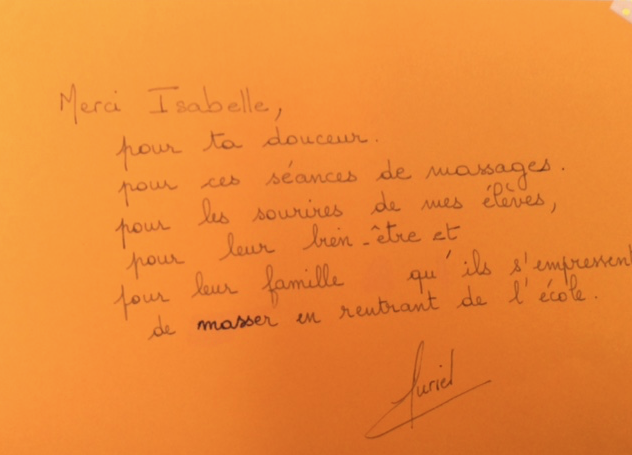 Merci Isabelle,
pour ta douceur.
pour ces séances de massages.
pour les sourires de mes élèves,
pour leur bien-être et
pour leur famille qu'ils s'empressent
de masser en rentrant de l'école.
Muriel